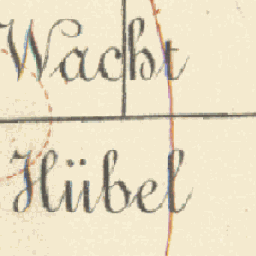 Wacht
Hübel